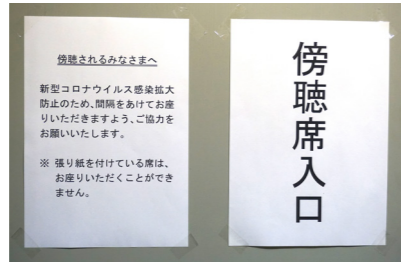 傍聴されるみなさまへ
新型コロナウイルス感染拡大
防止のため、間隔をあけてお座
りいただきますよう、ご協力を
お願いいたします。
※ 張り紙を付けている席は、
お座りいただくことができ
ません。
傍聴席入口